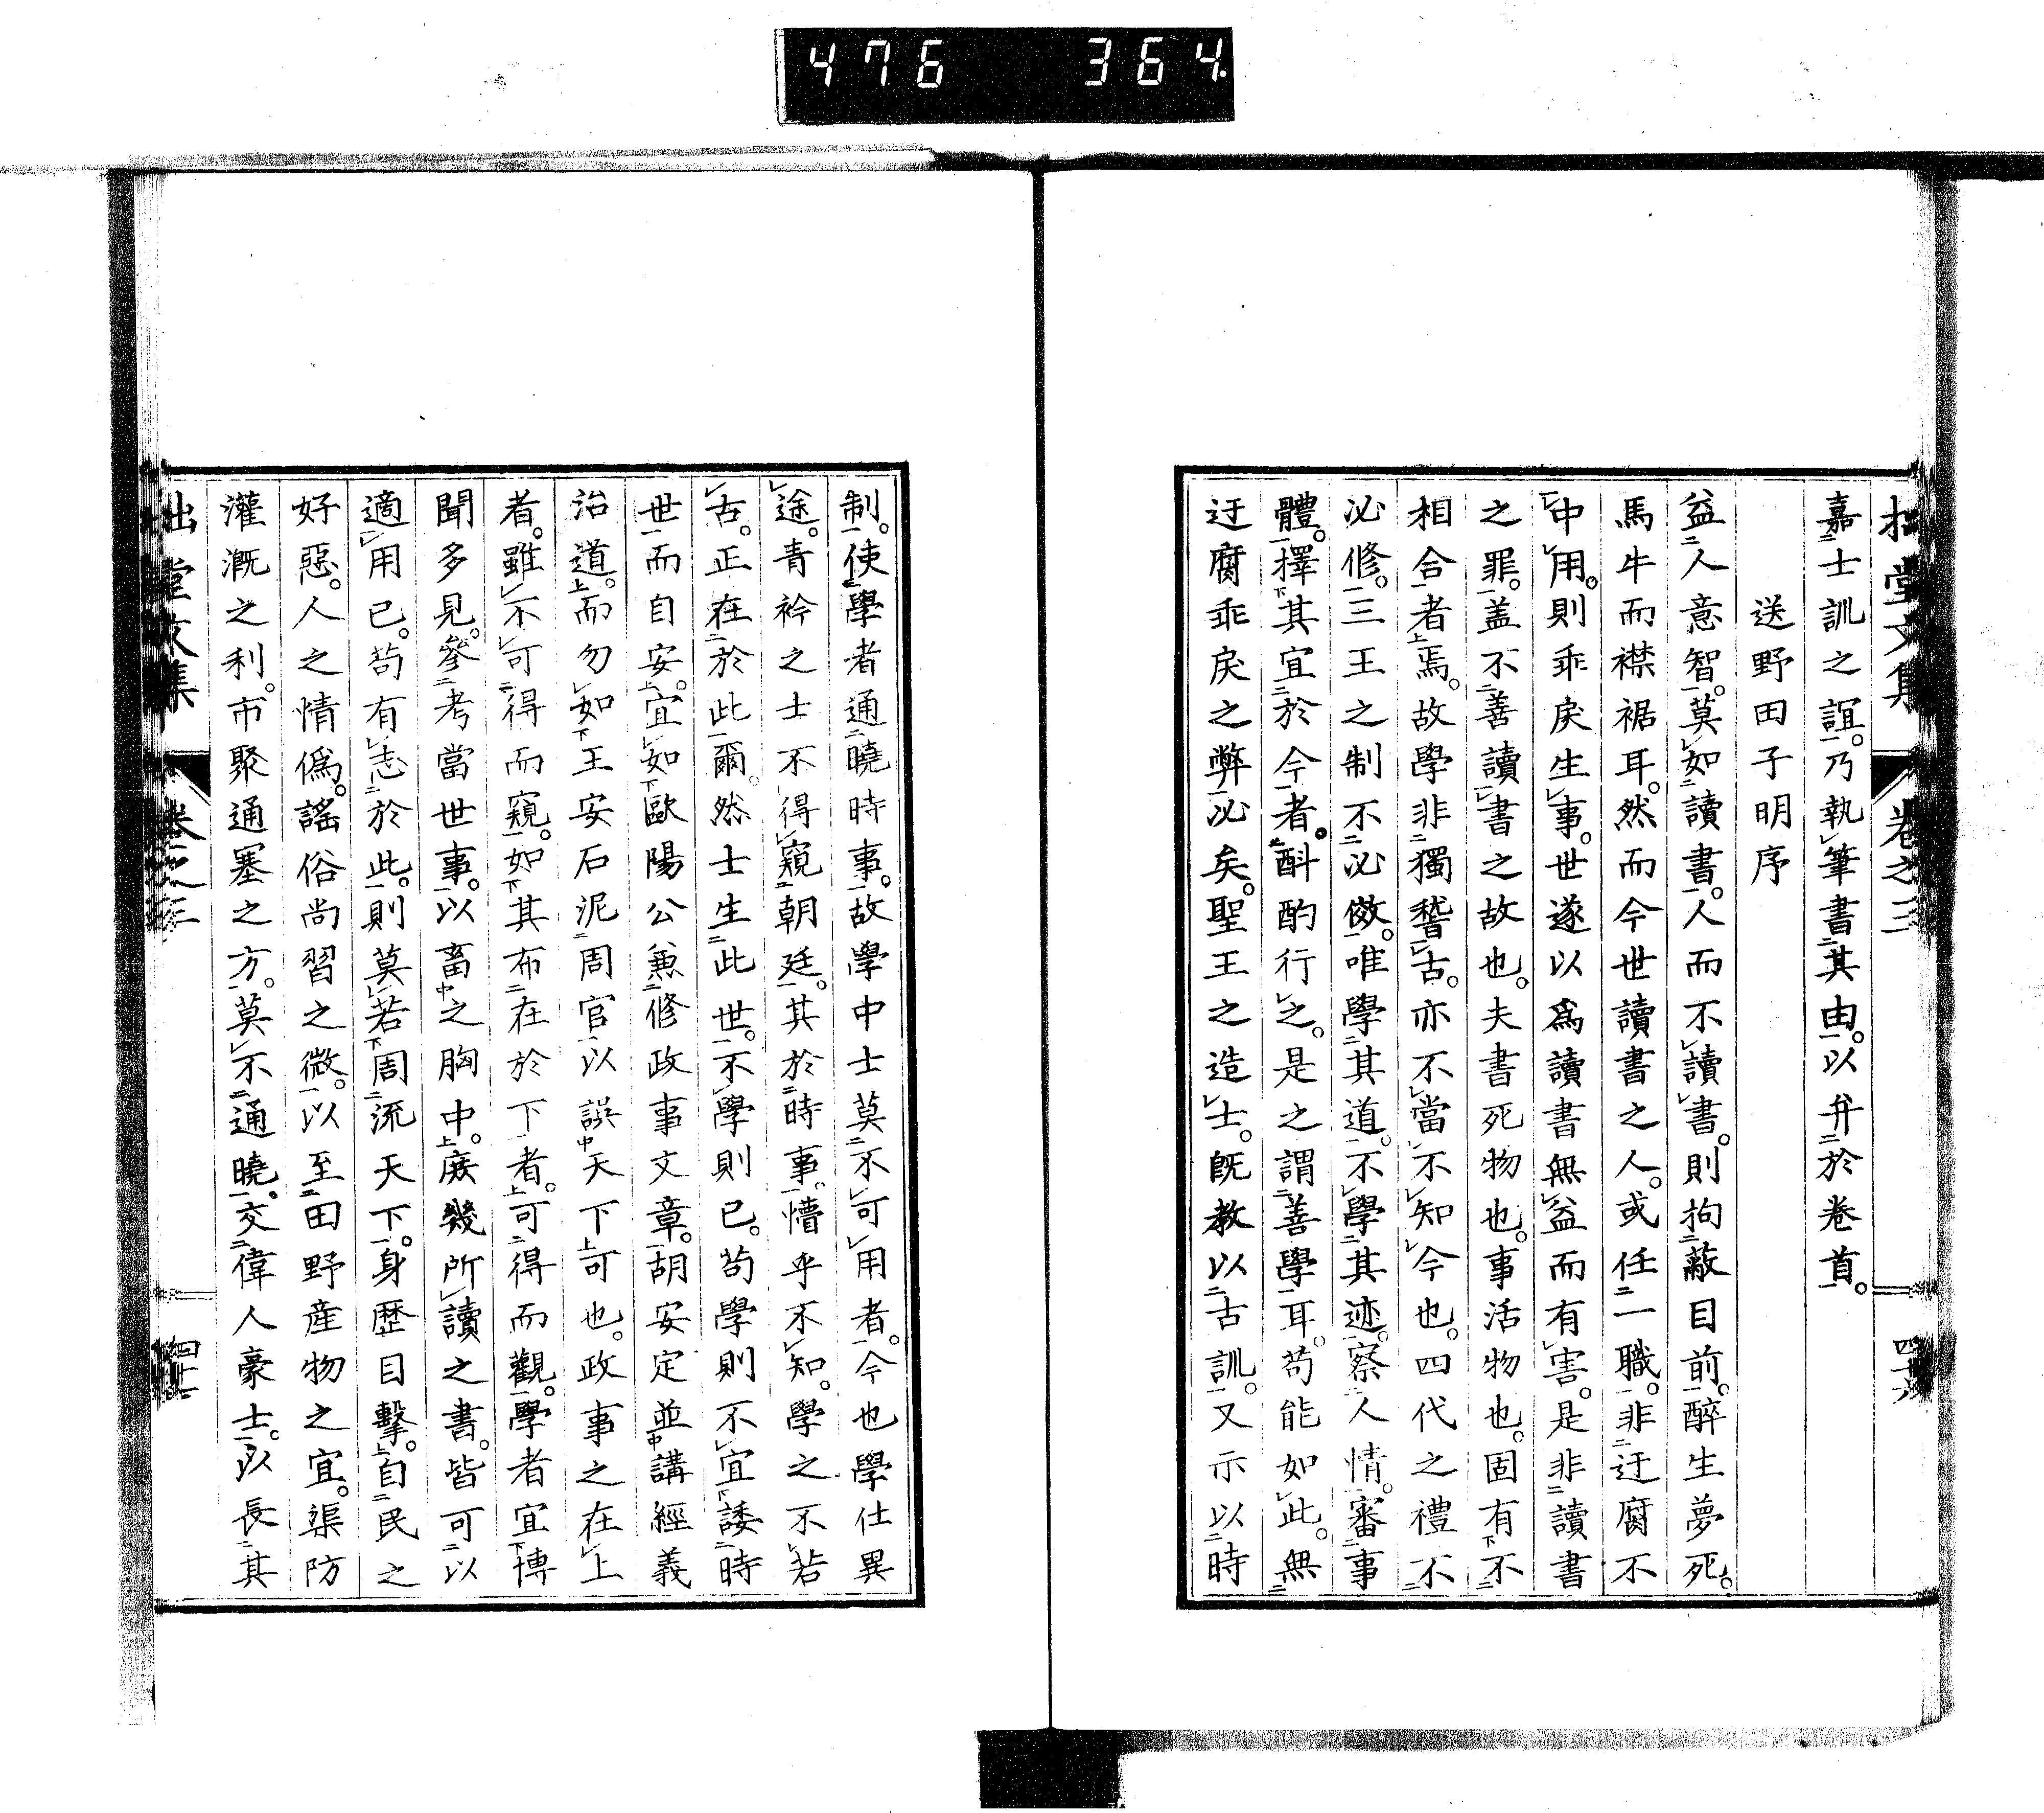 476 364.
拙堂文集 卷之三 四十六
嘉士訓之誼。乃執筆書其由。以弁於卷首。
送野田子明序
益人意智。莫如讀書。人而不讀書。則拘蔽目前。醉生夢死。
馬牛而襟裾耳。然而今世讀書之人。或任一職。非迂腐不
中用。則乖戾生事。世遂以爲讀書無益而有害。是非讀書
之罪。蓋不善讀書之故也。夫書死物也。事活物也。固有不
相合者焉。故學非獨稽古。亦不當不知今也。四代之禮不
必修。三王之制不必倣。唯學其道。不學其迹。察人情。審事
體。擇其宜於今者。斟酌行之。是之謂善學耳。苟能如此。無
迂腐乖戾之弊必矣。聖王之造士。既教以古訓。又示以時
制。使學者通曉時事。故學中士莫不可用者。今也學仕異
途。青衿之士不得窺朝廷。其於時事。懵乎不知。學之不若
古。正在於此爾。然士生此世。不學則已。苟學則不宜諉時
世而自安。宜如歐陽公兼修政事文章。胡安定並講經義
治道。而勿如王安石泥周官以誤天下可也。政事之在上
者。雖不可得而窺。如其布在於下者。可得而觀。學者宜博
聞多見。參考當世事。以畜之胸中。庶幾所讀之書。皆可以
適用已。苟有志於此。則莫若周流天下。身歴目擊。自民之
好惡。人之情僞。謠俗尚習之微。以至田野産物之宜。渠防
灌漑之利。市聚通塞之方。莫不通曉。交偉人豪士。以長其
拙堂文集 卷之三 四十六